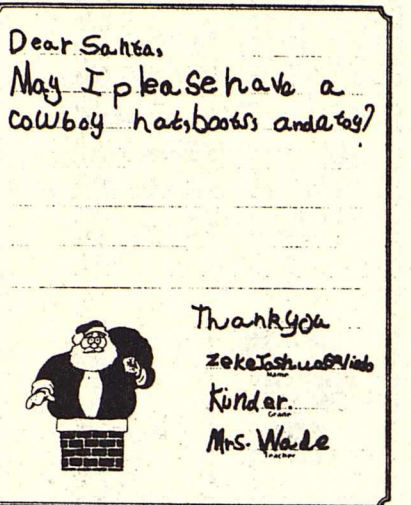 Dear Santa,
May I please have a
cowboy hat, boots, and a toy?
Thank you
Zeke Joshua
Name
Kinder.
Grade
Mrs. Wade
Teacher